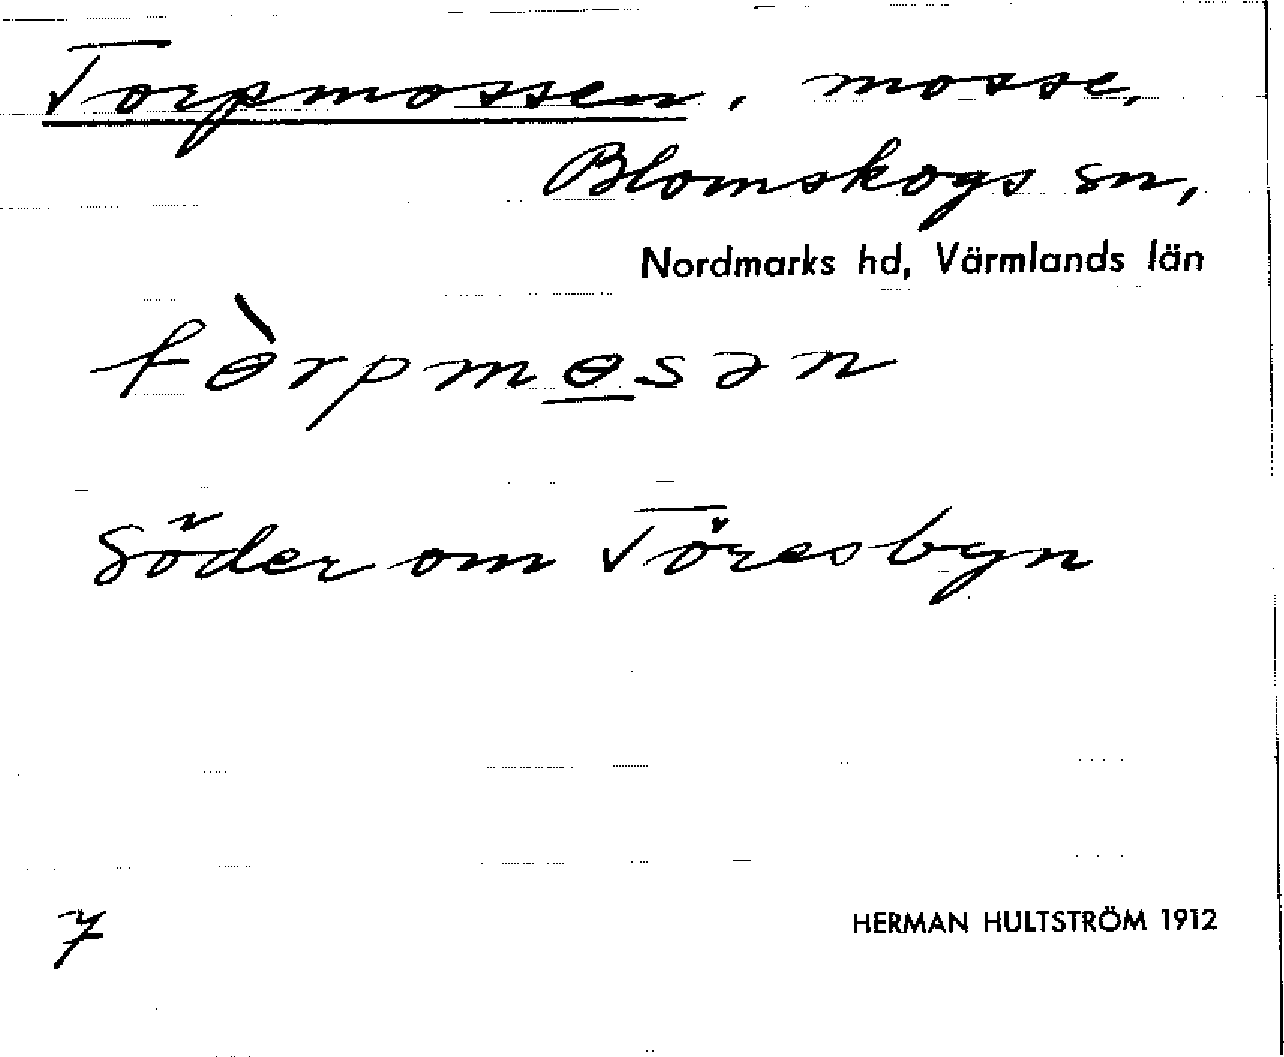 Torpmossen, mosse,
Blomskogs sn,
Nordmarks hd, Värmlands län
tɵ̀rpmɵsən
Söder om Töresbyn
7
HERMAN HULTSTRÖM 1912